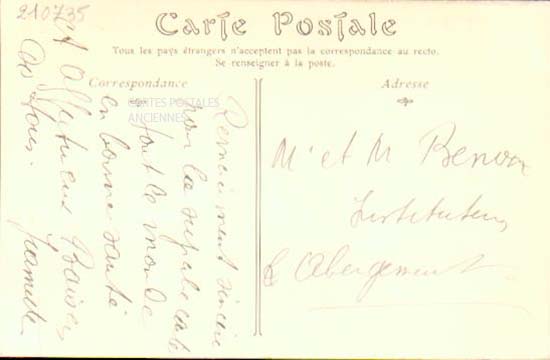 210735
Carte Postale
Tous les pays étrangers n'acceptent pas la correspondance au recto.
Se renseigner à la poste.
Correspondance
Adresse
CARTES POSTALES
ANCIENNES
Remerciement sincère
pour la superbe carte
tout le monde
en bonne santé
et affectueux Baisers
de tous.
Mr et M Benoon
Instituteurs
L'Abergement